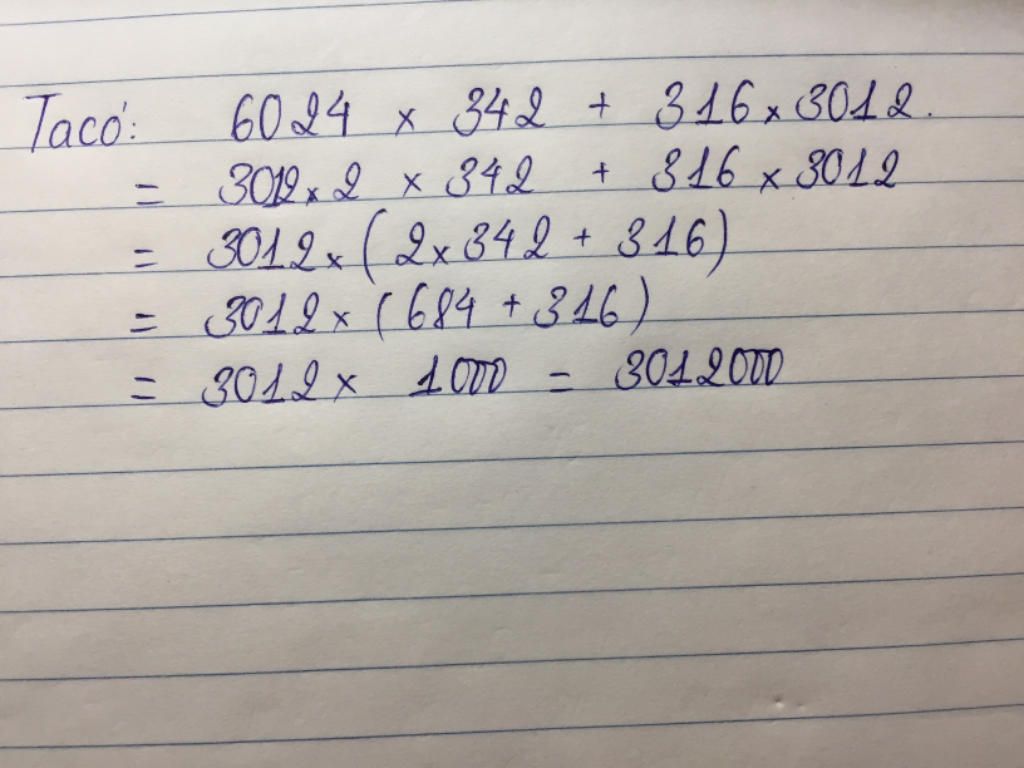 Ta có: 6024 x 342 + 316 x 3012.
= 3012 x 2 x 342 + 316 x 3012
= 3012 x ( 2 x 342 + 316 )
= 3012 x ( 684 + 316 )
= 3012 x 1000 = 3012000